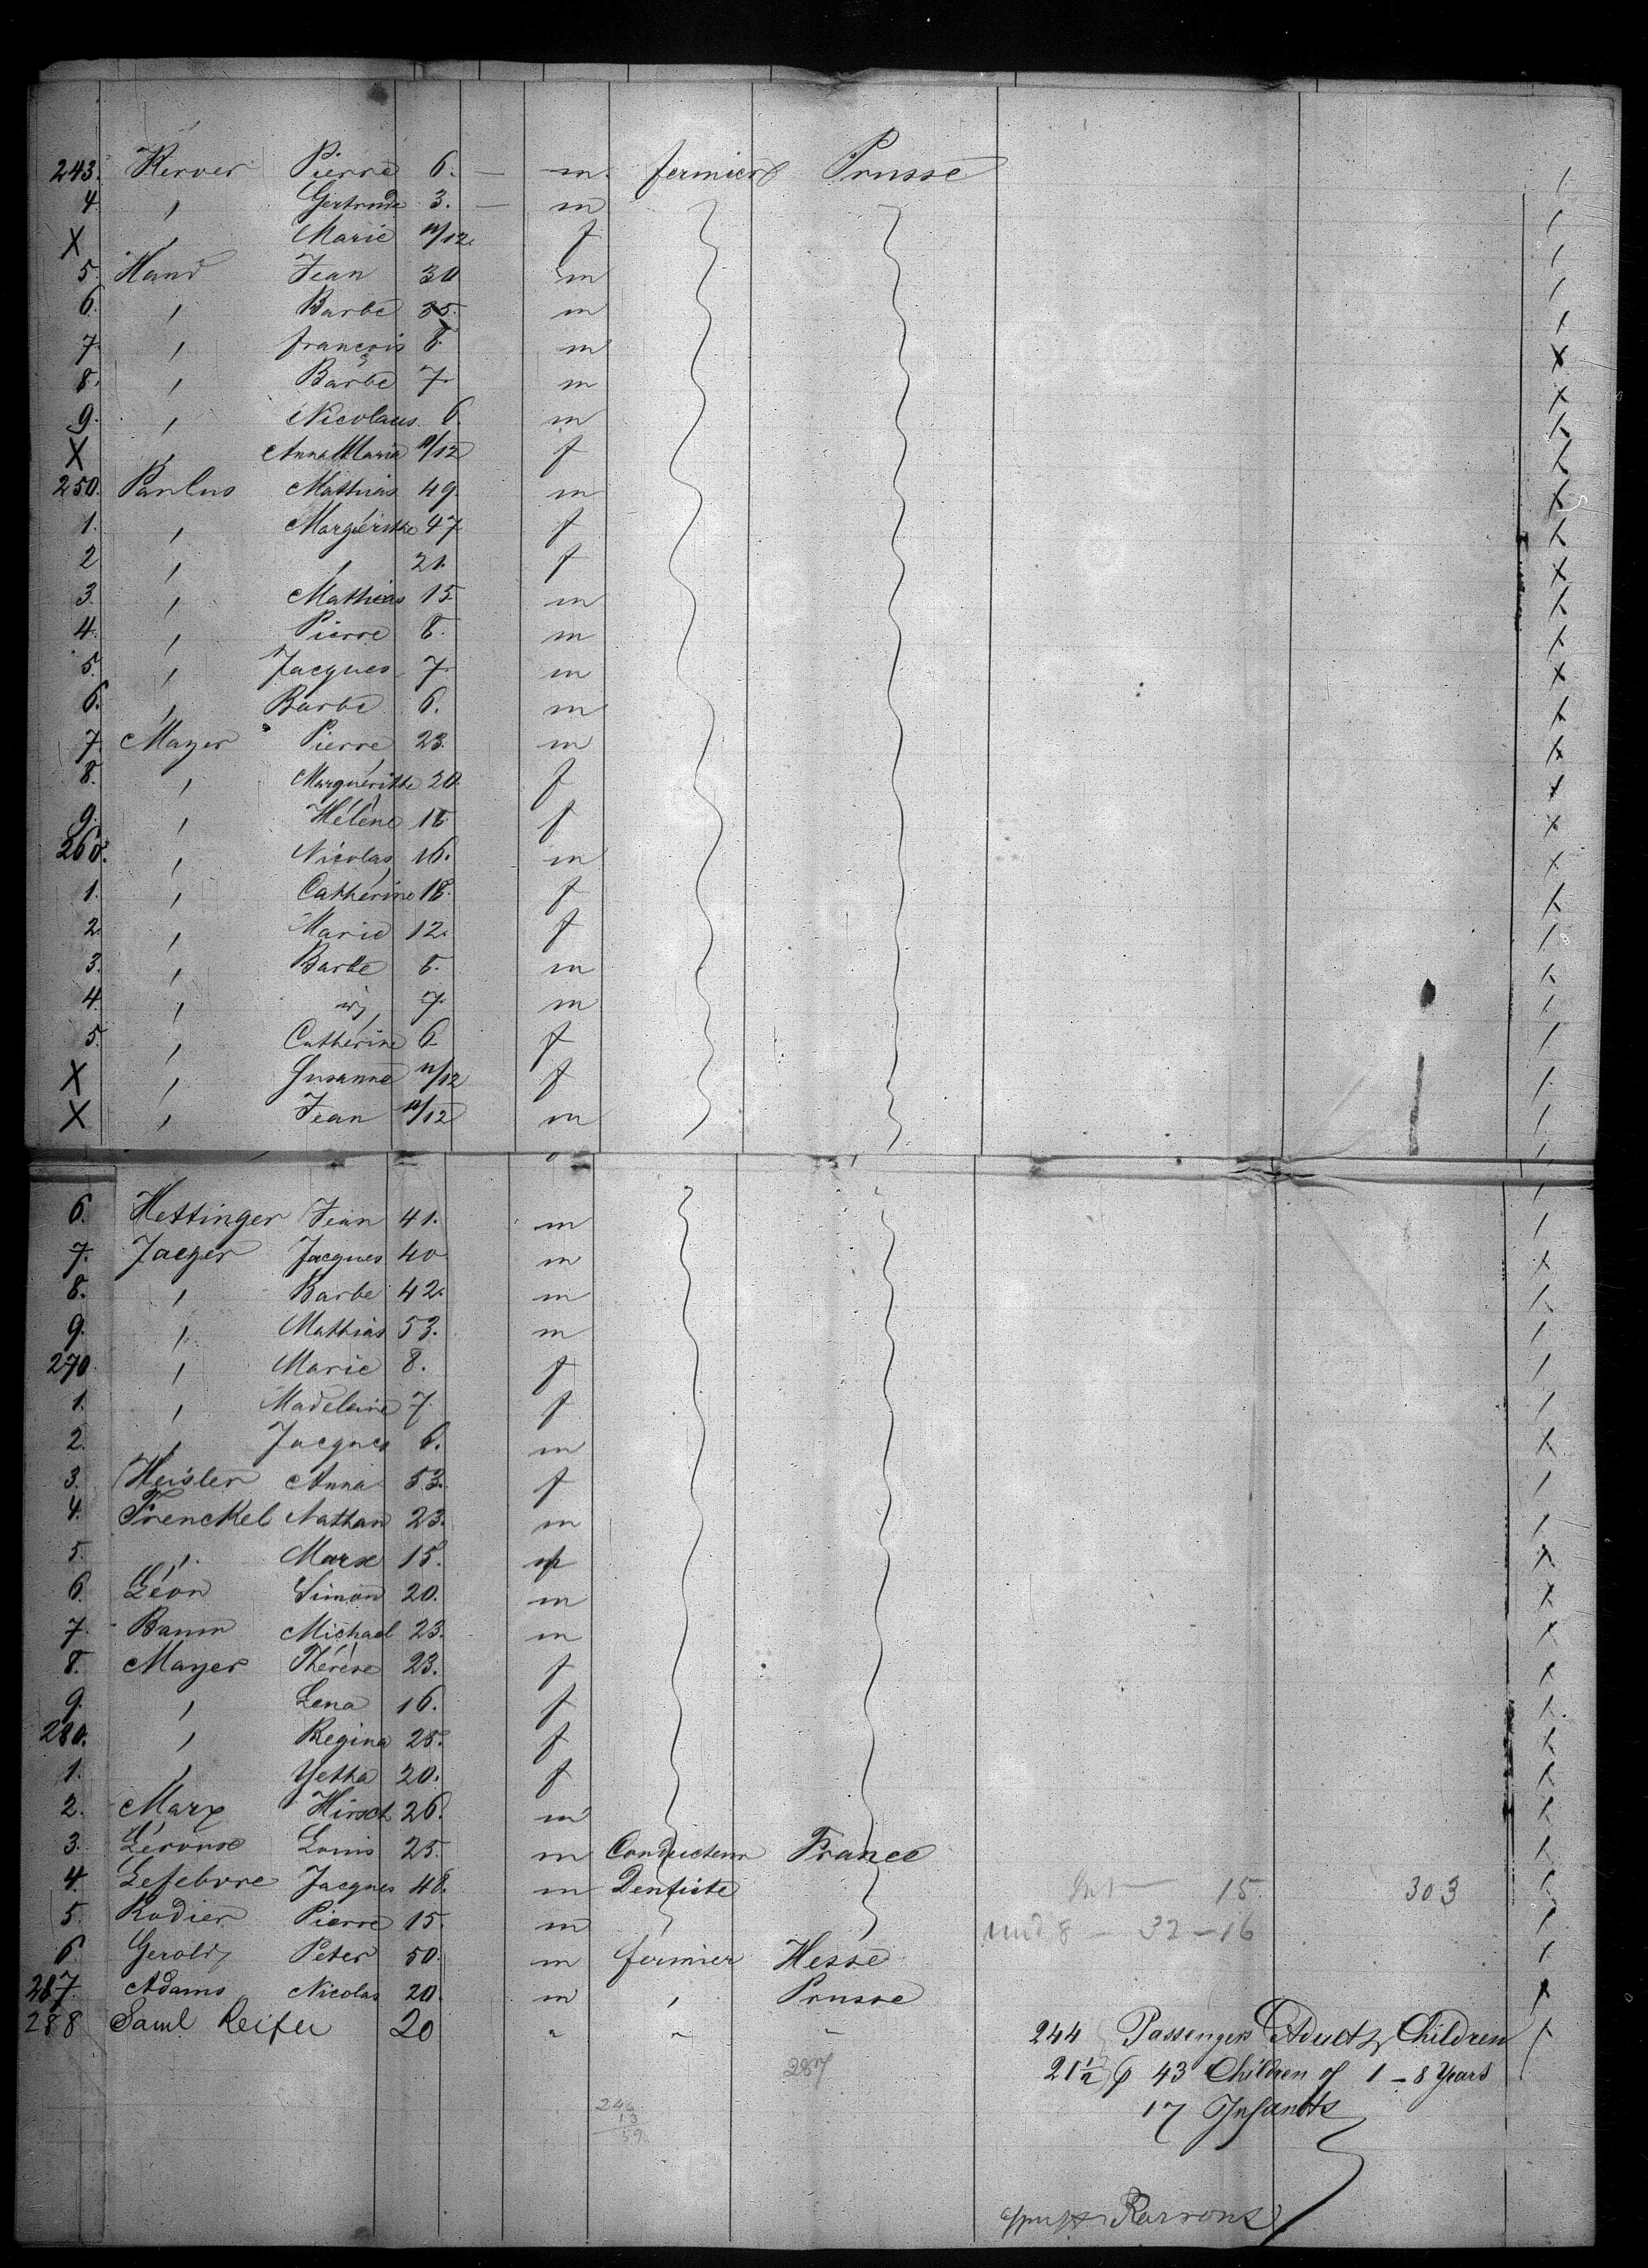 243. Kerver Pierre 6. — m. fermier Prusse
4. " Gertrude 3. — m
X " Marie 11/12 f
5. Hand Jean 30 m
6. " Barbe 35. m
7. " françois 8. m
8. " Barbe 7 m
9. " Nicolaus 6. m
X " Anna Maria 11/12 f
250. Paulus Mathias 49 m
1. " Marguerithe 47 f
2 " " 21. f
3. " Mathias 15 m
4. " Pierre 8. m
5. " Jacques 7 m
6. " Barbe 6. m
7. Mayer Pierre 23. m
8. " Marguerithe 20 f
9. " Hélène 18 f
260. " Nicolas 16. m
1. " Cathérine 18. f
2. " Marie 12. f
3. " Barbe 8. m
4. " id, 7. m
5. " Cathérine 6 f
X " Susanne 11/12 f
X " Jean 11/12 m
6. Hettinger Jean 41. m
7. Jaeger Jacques 40 m
8. " Barbe 42. m
9. " Mathias 53. m
270 " Marie 8. f
1. " Madeleine 7 f
2. " Jacques 6. m
3. Heisler Anna 53. f
4. Frenckel Nathan 23. m
5. " Marx 15. m
6. Léon Simon 20. m
7. Baum Michael 23. m
8. Mayer Thérèse 23. f
9. " Lena 16. f
280. " Regina 25. f
1. " Yetha 20. f
2. Marx Hirsch 26. m
3. Louis 25. m Conducteur France
4. Lefebvre Jacques 48. m Dentiste 15 303
5. Rodier Pierre 15. m und 8 — 32 — 16
6. Gerold, Peter 50. m fermier Hesse
287. Adams Nicolas 20. m " Prusse
288 Saml Reifer 20 " " "
244 Passengers Adult & Children
287
21 1/2 43 Children of 1 – 8 Years
17 Infants
Barrons